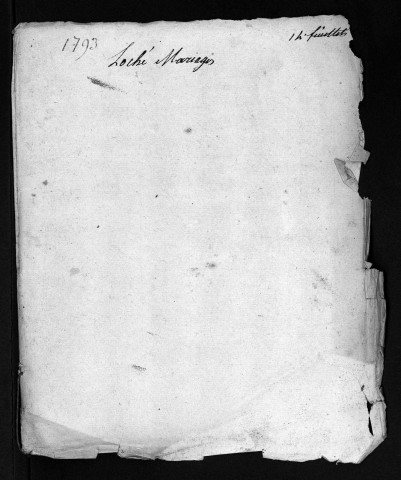 1793
Loché Mariages
14 feuillets